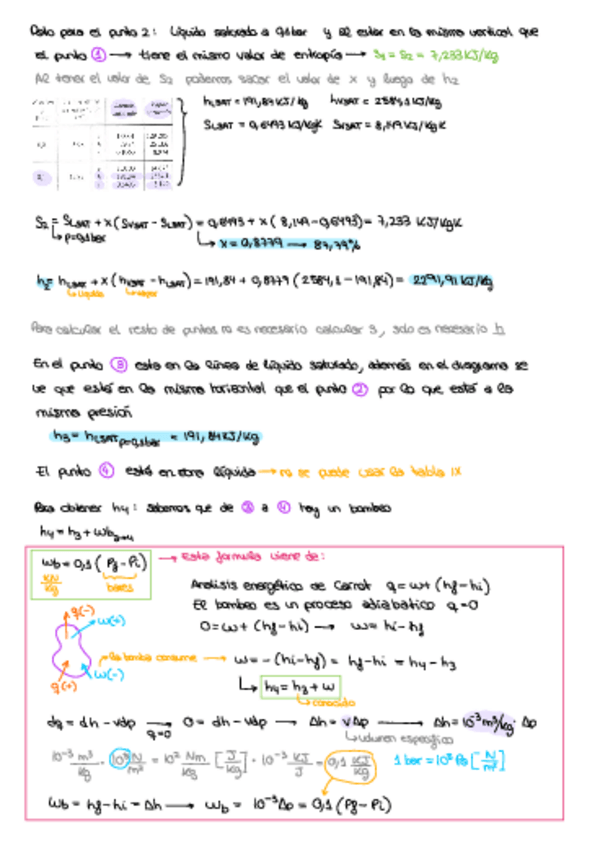 Dato para el punto 2: Líquido saturado a 0,1bar y al estar en la misma vertical que
el punto ① → tiene el mismo valor de entropía → S1 = S2 = 7,233 KJ/Kg
Al tener el valor de S2 podemos sacar el valor de x y luego de h2
hLSAT = 191,84 KJ/Kg hVSAT = 2584,8 KJ/Kg
SLSAT = 0,6493 KJ/KgK SVSAT = 8,149 KJ/KgK
S2 = SLSAT + x (SVSAT - SLSAT) = 0,6493 + x ( 8,149 - 0,6493) = 7,233 KJ/KgK
P=0,1bar x = 0,8779 → 87,79%
h2 = hLSAT + x (hVSAT - hLSAT) = 191,84 + 0,8779 ( 2584,8 - 191,84) = 2291,91 KJ/Kg
líquido vapor
Para calcular el resto de puntos no es necesario calcular S, solo es necesario h
En el punto ③ esta en la línea de líquido saturado, además en el diagrama se
ve que está en la misma horizontal que el punto ② por lo que está a la
misma presión
h3 = hLSAT P=0,1bar = 191,84 KJ/Kg
El punto ④ está en zona líquida → no se puede usar la tabla IX
Para obtener h4: Sabemos que de ③ a ④ hay un bombeo
h4 = h3 + wb3→4
wb = 0,1 ( Pf - Pi) → Esta formula viene de:
KJ/Kg bares
Analisis energético de Carnot q = w + (hf - hi)
El bombeo es un proceso adiabático q = 0
0 = w + (hf - hi) → w = hi - hf
q(-)
w(+)
la bomba consume → w = - (hi - hf) = hf - hi = h4 - h3
w(-)
q(+)
h4 = h3 + w
conocido
dq = dh - vdp → q=0 0 = dh - vdp → Δh = vΔp → Δh = 10⁻³ m³/kg · Δp
volumen específico
10⁻³ m³/kg · 10⁵ N/m² = 10² Nm/kg [J/kg] · 10⁻³ KJ/J = 0,1 KJ/kg 1 bar = 10⁵ Pa [N/m²]
wb = hf - hi = Δh → wb = 10⁻³ Δp = 0,1 (Pf - Pi)